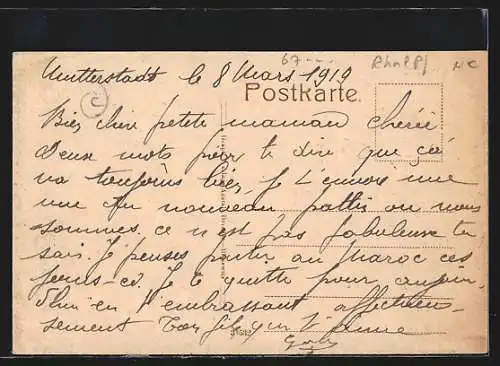 67 ---
Rhnl Pf
NC
Mutterstadt le 8 Mars 1919
Postkarte.
C
Bien chère petite maman chérie
Deux mots pour te dire que ça
va toujours bien, Je t'envoie une
vue du nouveau où nous
sommes. ce n'est pas fabuleux tu
sais. Je penses partir au Maroc ces
jours-ci. Je te quitte pour aujour
d'hui en t'embrassant affectueu-
sement Ton fils qui t'aime